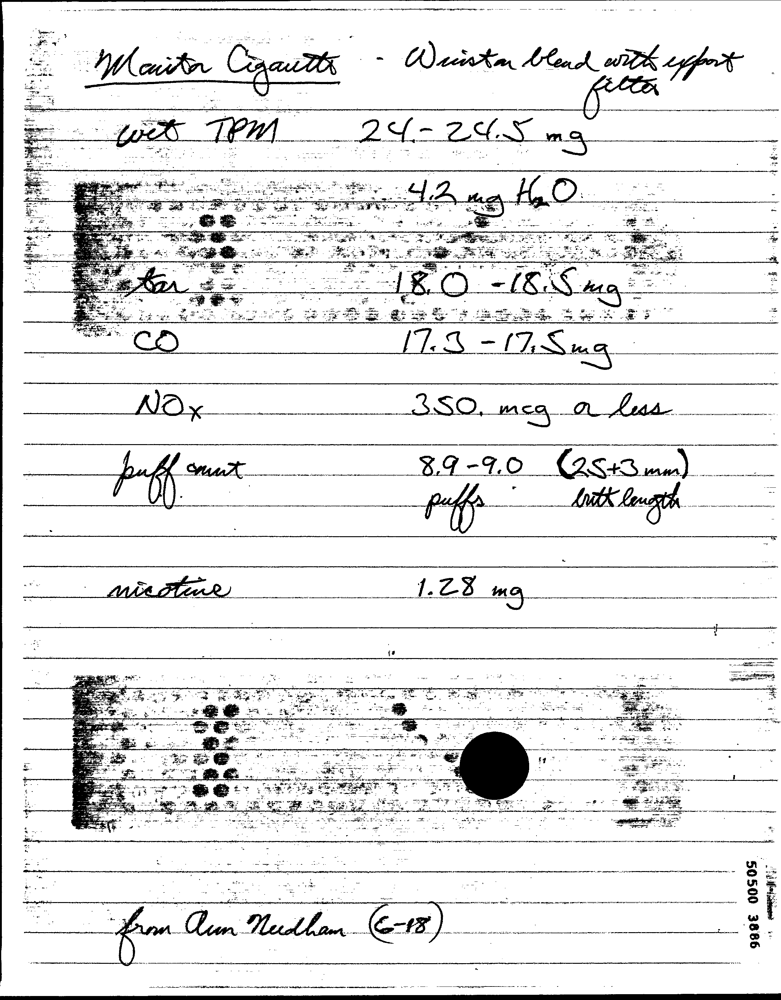 Monitor Cigarette - Winston blend with export
filter
wet TPM 24.-24.5 mg
4.2 mg H2O
tar 18.0 -18.5 mg
CO 17.3 -17.5 mg
NOx 350. mcg or less
puff count 8.9-9.0 (25+3 mm)
puffs butt length
nicotine 1.28 mg
from Ann Needham (6-18)
50500 3886